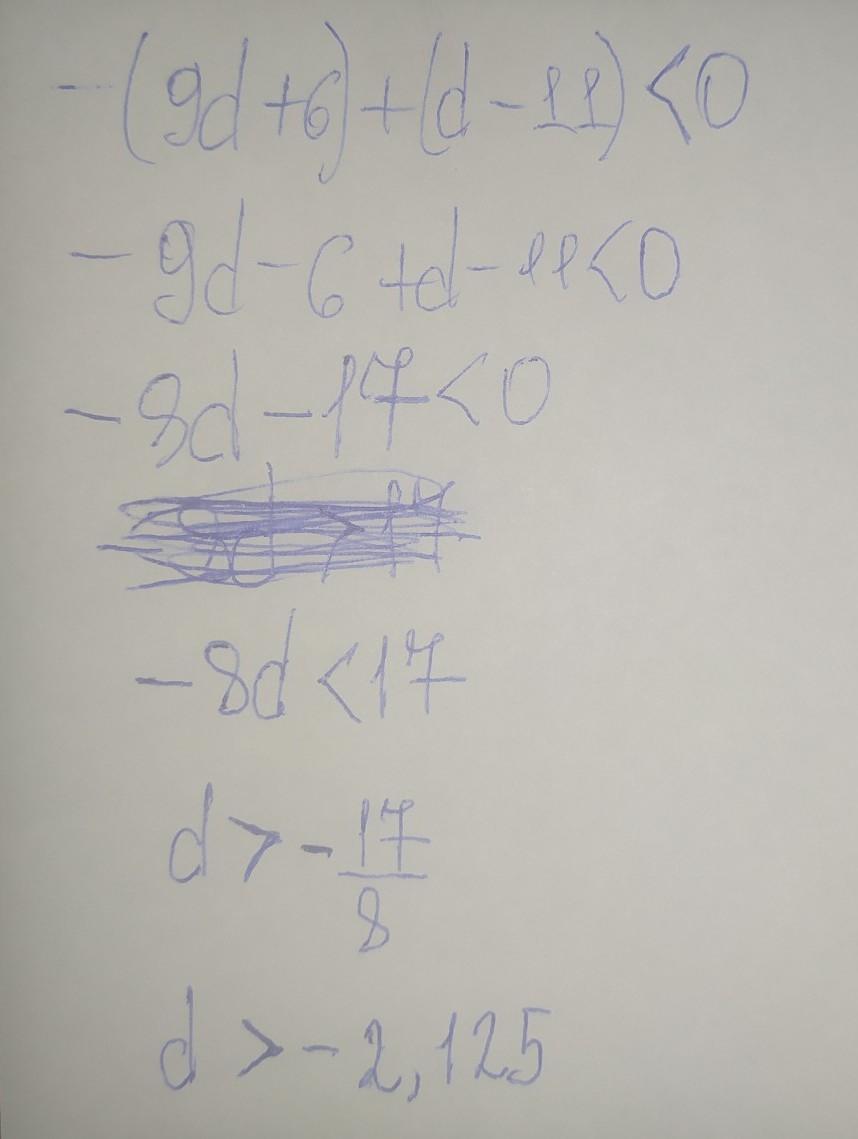 -(9d+6)+(d-11)<0
-9d-6+d-11<0
-8d-17<0
-8d<17
d>-17/8
d>-2,125